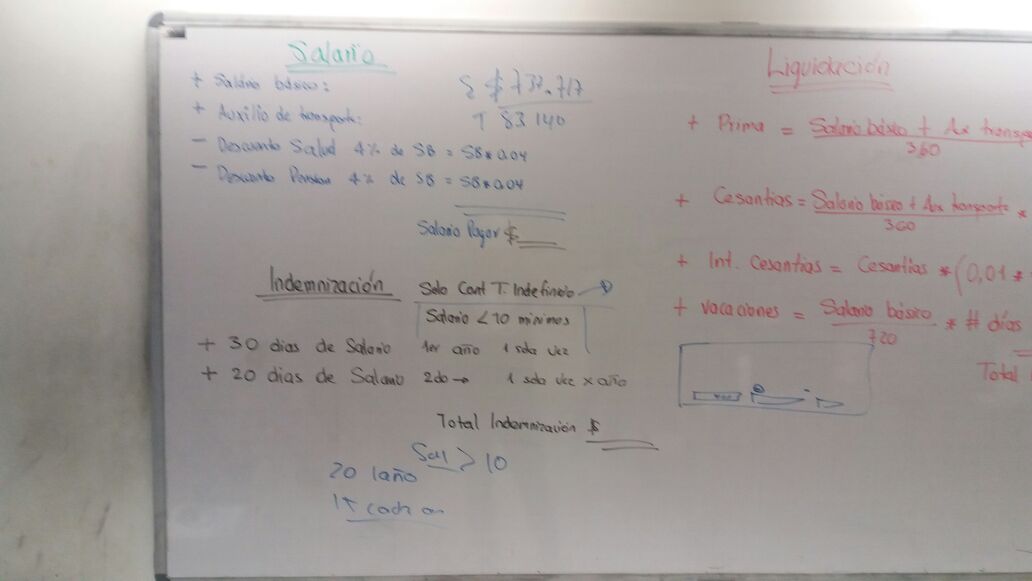 Salario
+ Salario básico: $ 737.717
+ Auxilio de transporte: T 83140
- Descuento Salud 4% de SB = SB*0.04
- Descuento Pension 4% de SB = SB*0.04
Salario Pagar $
Indemnización Solo Cont T. Indefinido
Salario < 10 minimos
+ 30 dias de Salario 1er año 1 sola vez
+ 20 dias de Salario 2do → 1 sola vez x año
Total Indemnización $
Sal > 10
20 1año
15 cada
Liquidación
+ Prima = Salario básico + Aux transpo
360
+ Cesantias = Salario básico + Aux transporte *
360
+ Int. Cesantias = Cesantias * (0,01 *
+ vacaciones = Salario básico * # días
720
Total